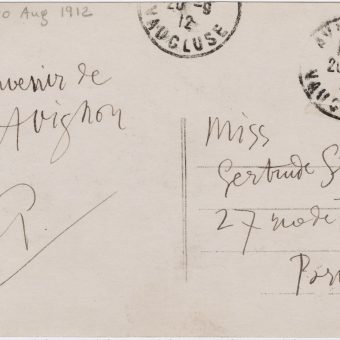 0 Aug 1912
20 -8
12
VAUCLUSE
AV
20
VAUC
venir de
Avignon
P.
Miss
Gertrude S
27 rue de
Par